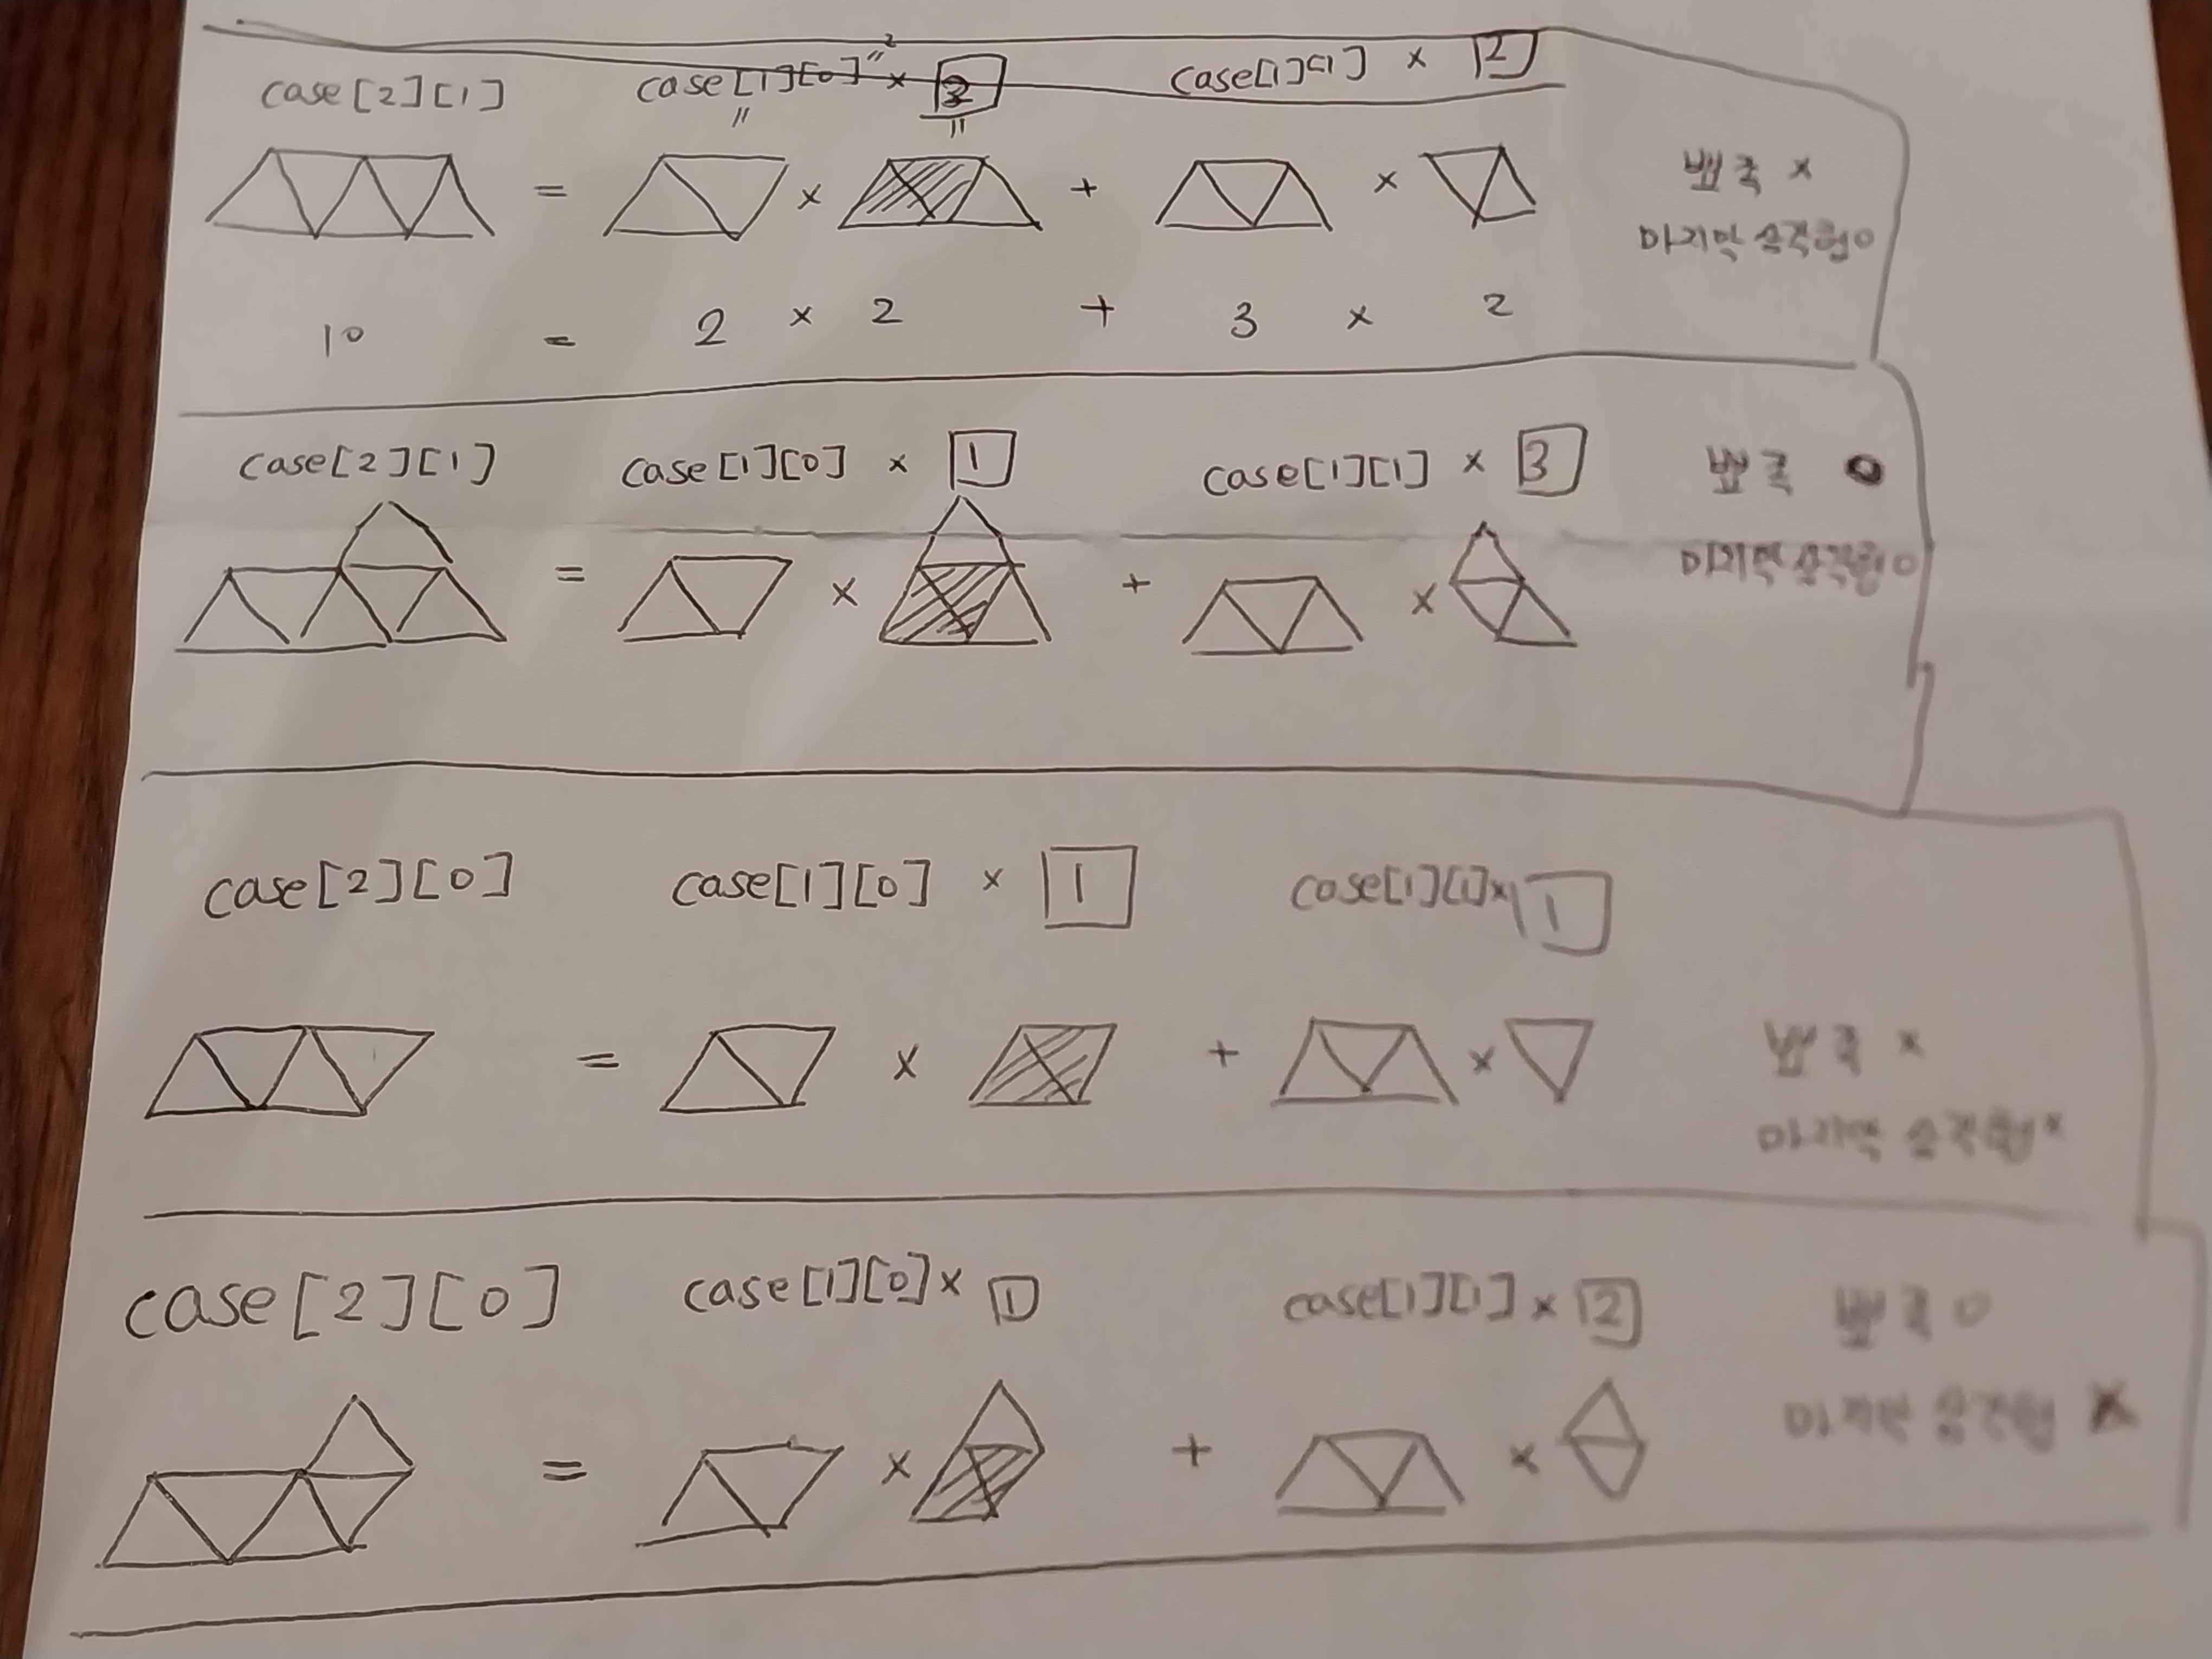 case[2][1] case[1][0] × 2 case[1][1] × 2
= × + ×
뾰족 ×
마지막 삼각형 o
10 = 2 × 2 + 3 × 2
case[2][1] case[1][0] × 1 case[1][1] × 3
뾰족 o
= × + ×
마지막 삼각형 o
case[2][0] case[1][0] × 1 case[1][1] × 1
= × + ×
뾰족 ×
마지막 삼각형 ×
case[2][0] case[1][0] × 1 case[1][1] × 2
뾰족 o
= × + ×
마지막 삼각형 ×